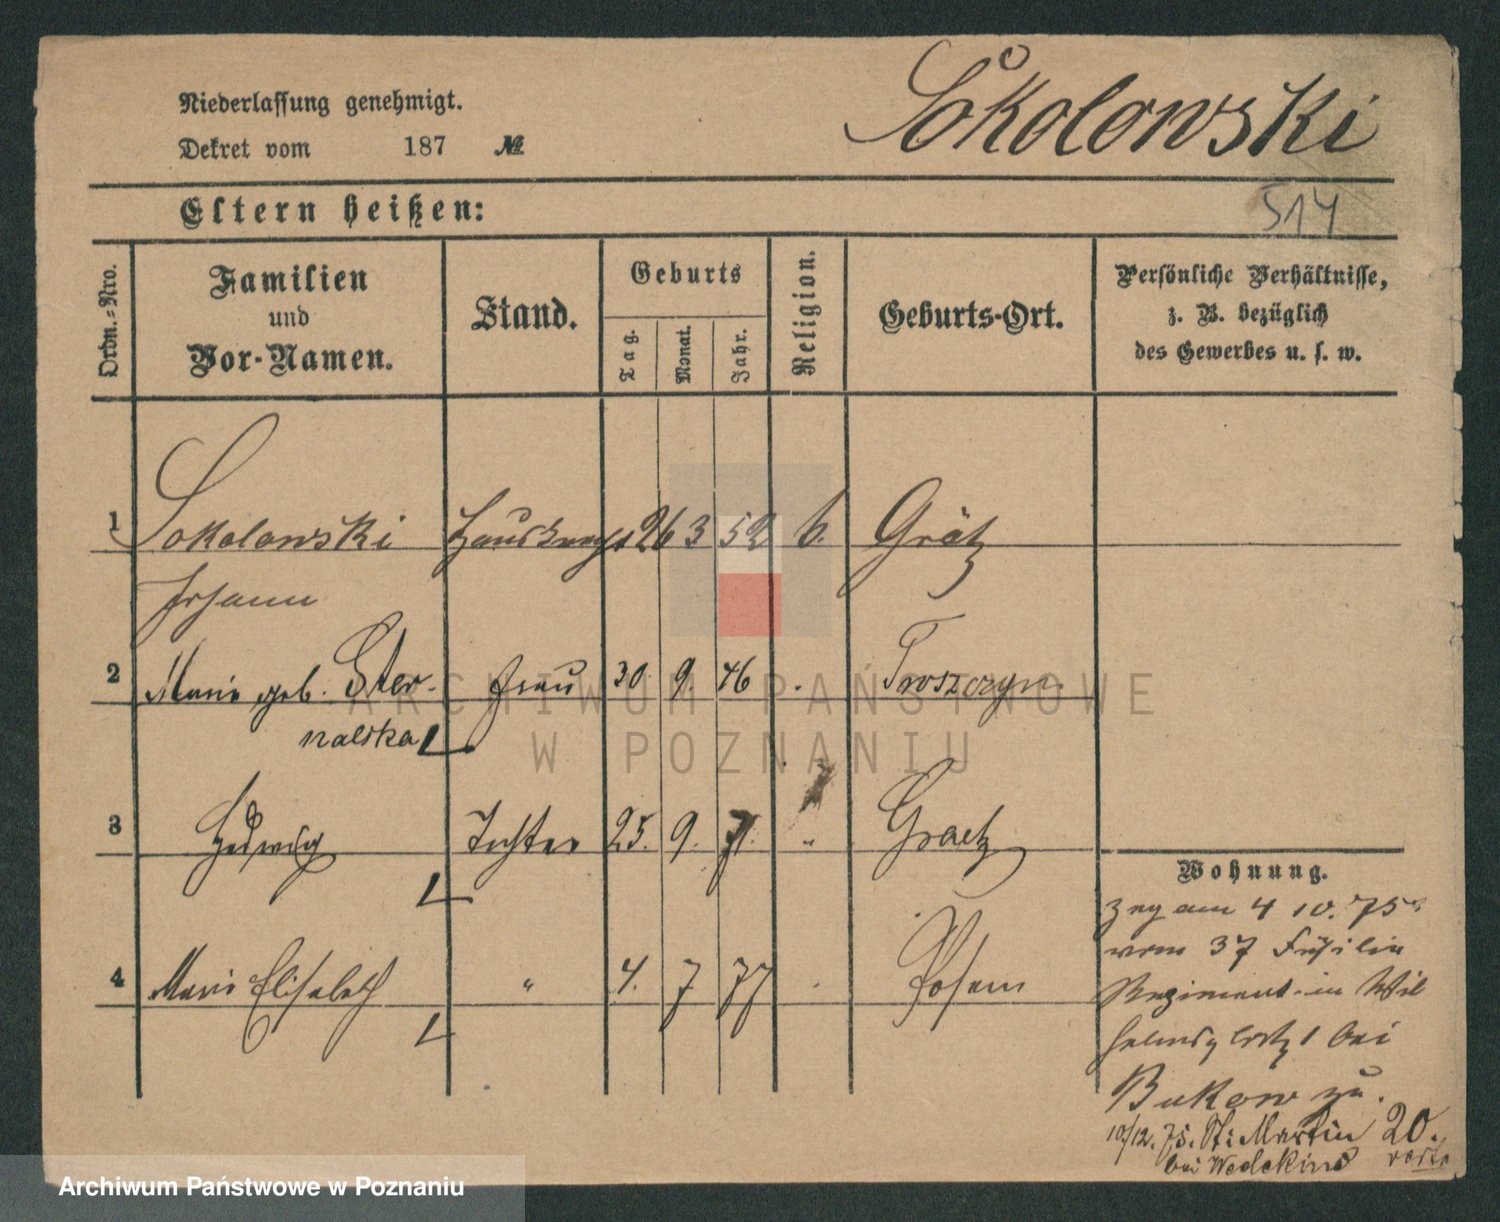 Niederlassung genehmigt.
Dekret vom 187 №
Sokolowski
514
Eltern heißen:
Ordn.-Nro.
Familien
und
Vor-Namen.
Stand.
Geburts
Tag.
Monat.
Jahr.
Religion.
Geburts-Ort.
Persönliche Verhältnisse,
z. B. bezüglich
des Gewerbes u. s. w.
1 Sokolowski Hausknecht 26 3 52 k. Grätz
Johann
2 Marie geb. Ster- Frau 30. 9. 46 Troszczyn
nalska
3 Hedwig Tochter 25. 9. 71. " Graetz
4 Marie Elisabeth " 4. 7 77 Posen
Wohnung.
Zog am 4 10. 75
vom 37 Füsilier
Regiment in Wil
helmsplatz 1 bei
Bukow zu.
10/12. 75. St: Martin 20.
bei Wedekind
ARCHIWUM PAŃSTWOWE
W POZNANIU
Archiwum Państwowe w Poznaniu